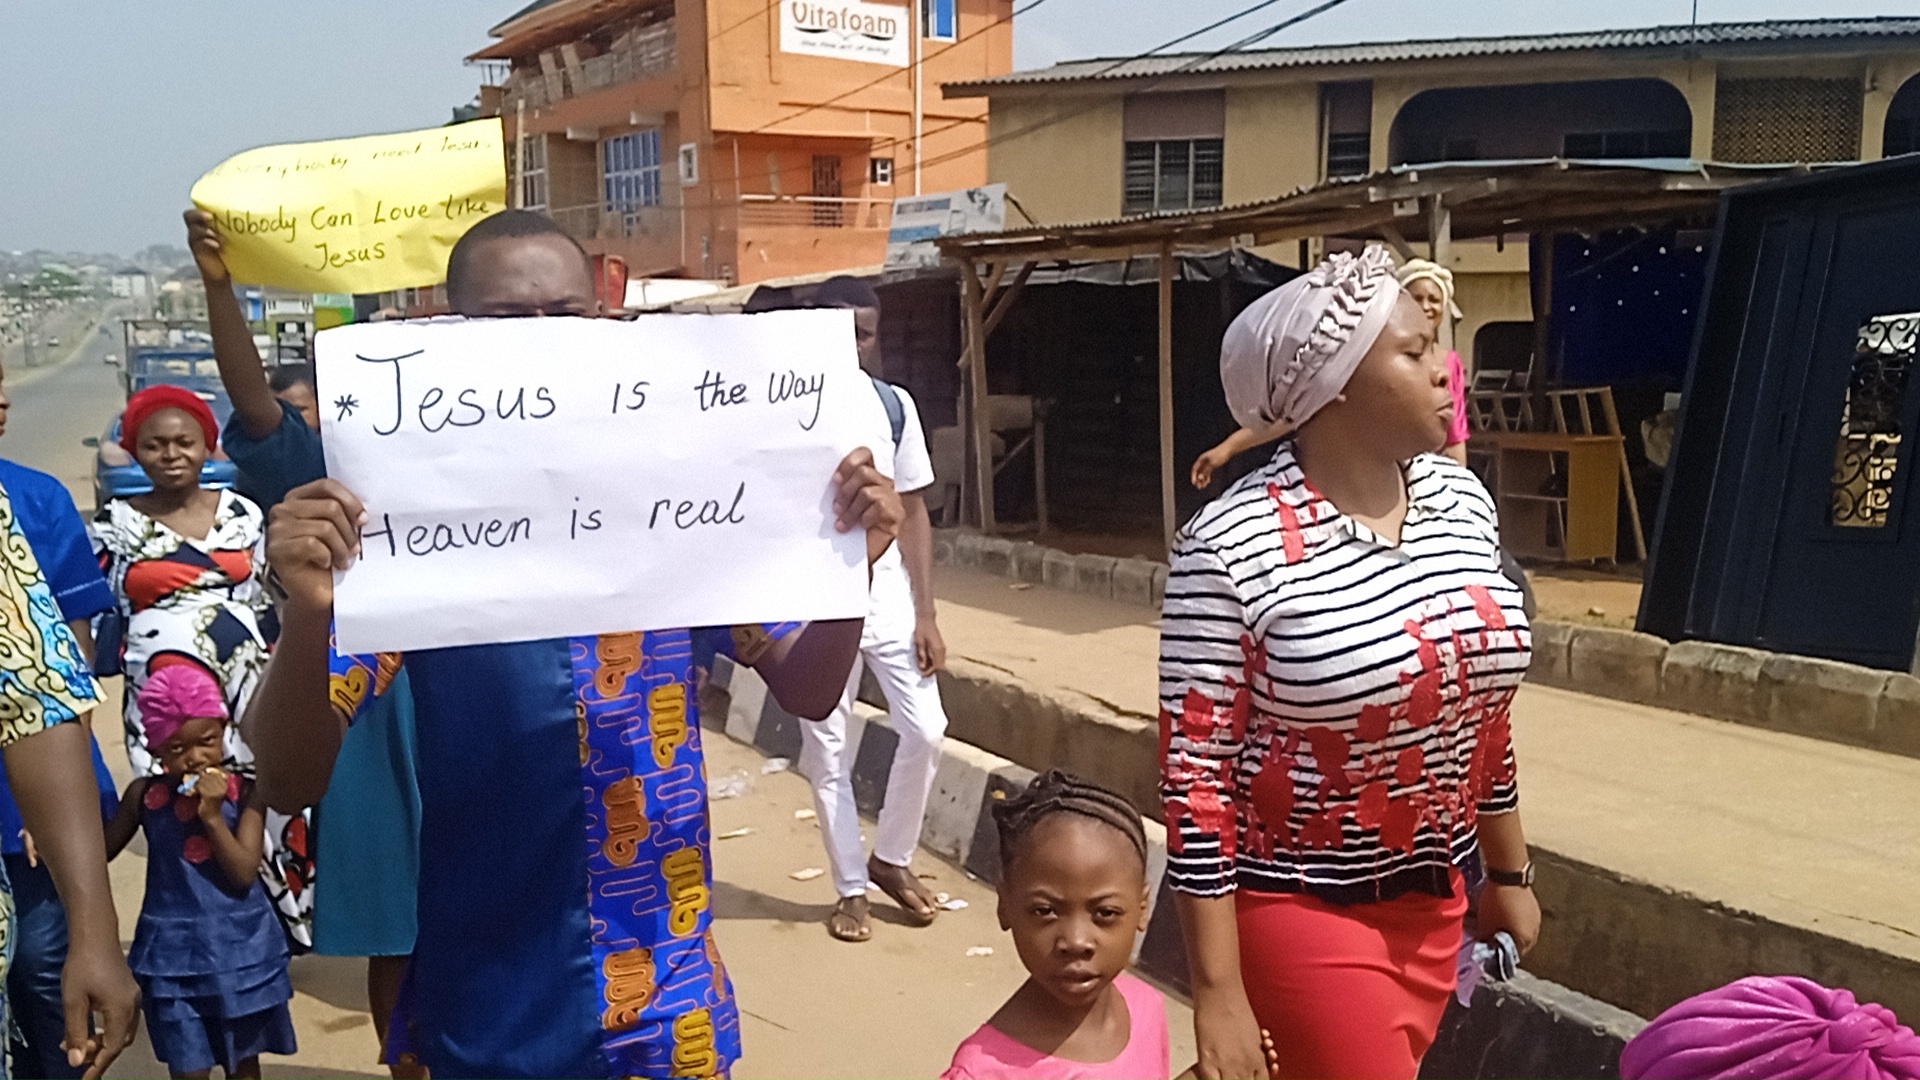 Vitafoam
the fine art of living
Everybody need Jesus
Nobody Can Love Like
Jesus
*Jesus is the Way
Heaven is real